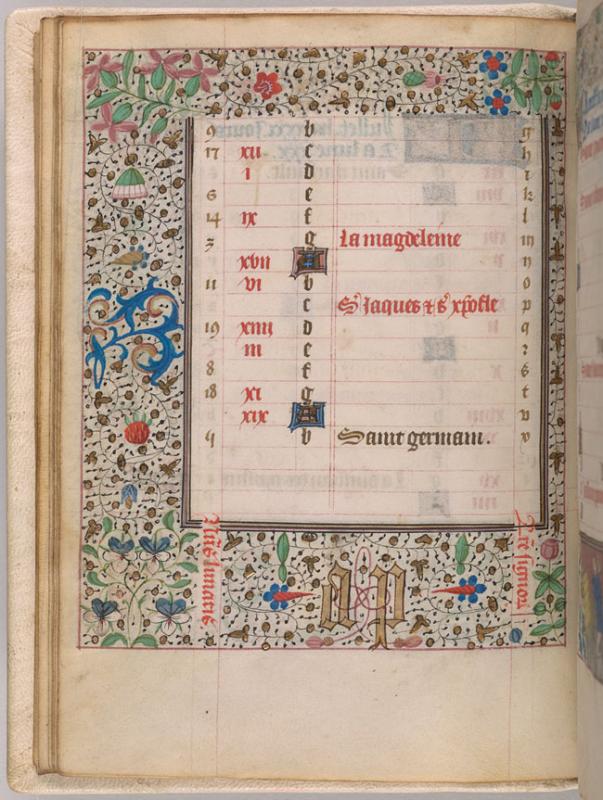 9 b g
17 xii c h
i d i
6 e k
14 ix f l
3 g La magdeleine m
xvii A n
11 vi b o
c S Jaques & s xpofle p
19 xiiii d q
iii e r
8 f s
18 xi g t
xix A v
4 b Saint germain. v
a p